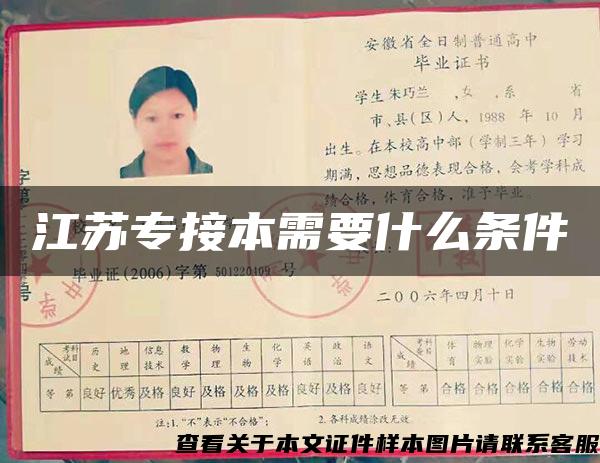 安徽省全日制普通高中
毕业证书
学生 朱巧兰 ,女 ,系 省
市、县(区)人, 1988 年 10 月
出生。在本校高中部(学制三年)学习
期满,思想品德表现合格,会考学科成
绩合格,体育合格,准予毕业。
江苏专接本需要什么条件
毕业证(2006)字第 501220409 号
二00六年四月十日
成绩 考科科目 历史 地理 信息技术 数学 物理 生物 化学 英语 政治 语文
等第 良好 优秀 及格 良好 及格 及格 及格 良好 及格 良好
成绩 考查科目 体育 物理实验 化学实验 生物实验 劳动技术
等第 合格 合格 合格 合格 合格
注:1."不"表示"不合格"; 2.各科成绩涂改无效
查看关于本文证件样本图片请联系客服